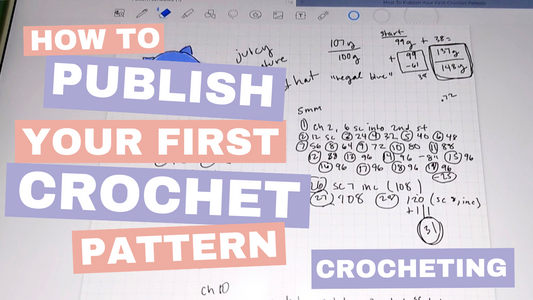 How To Publish Your First Crochet Pattern
HOW TO
PUBLISH
YOUR FIRST
CROCHET
PATTERN
CROCHETING
juicy
hat
107g
100g
start
99g + 38=
+
99
-61
38
137g
148g
"regal blue"
.22
5mm
① Ch 2, 6 sc into 2nd st
② 12 sc ③ 24 ④ 32 ⑤ 40 ⑥ 48
⑦ 56 ⑧ 64 ⑨ 72 ⑩ 80 ⑪ 88
⑫ 88 ⑬ 96 ⑭ 96 - 8" ⑮ 96
⑯ 96 ⑰ 96 ⑱ 96 96
-25
㉖ sc 7 inc (108)
㉗ 108 ㉘ 120 (sc 8, inc)
+1
31
ch 10